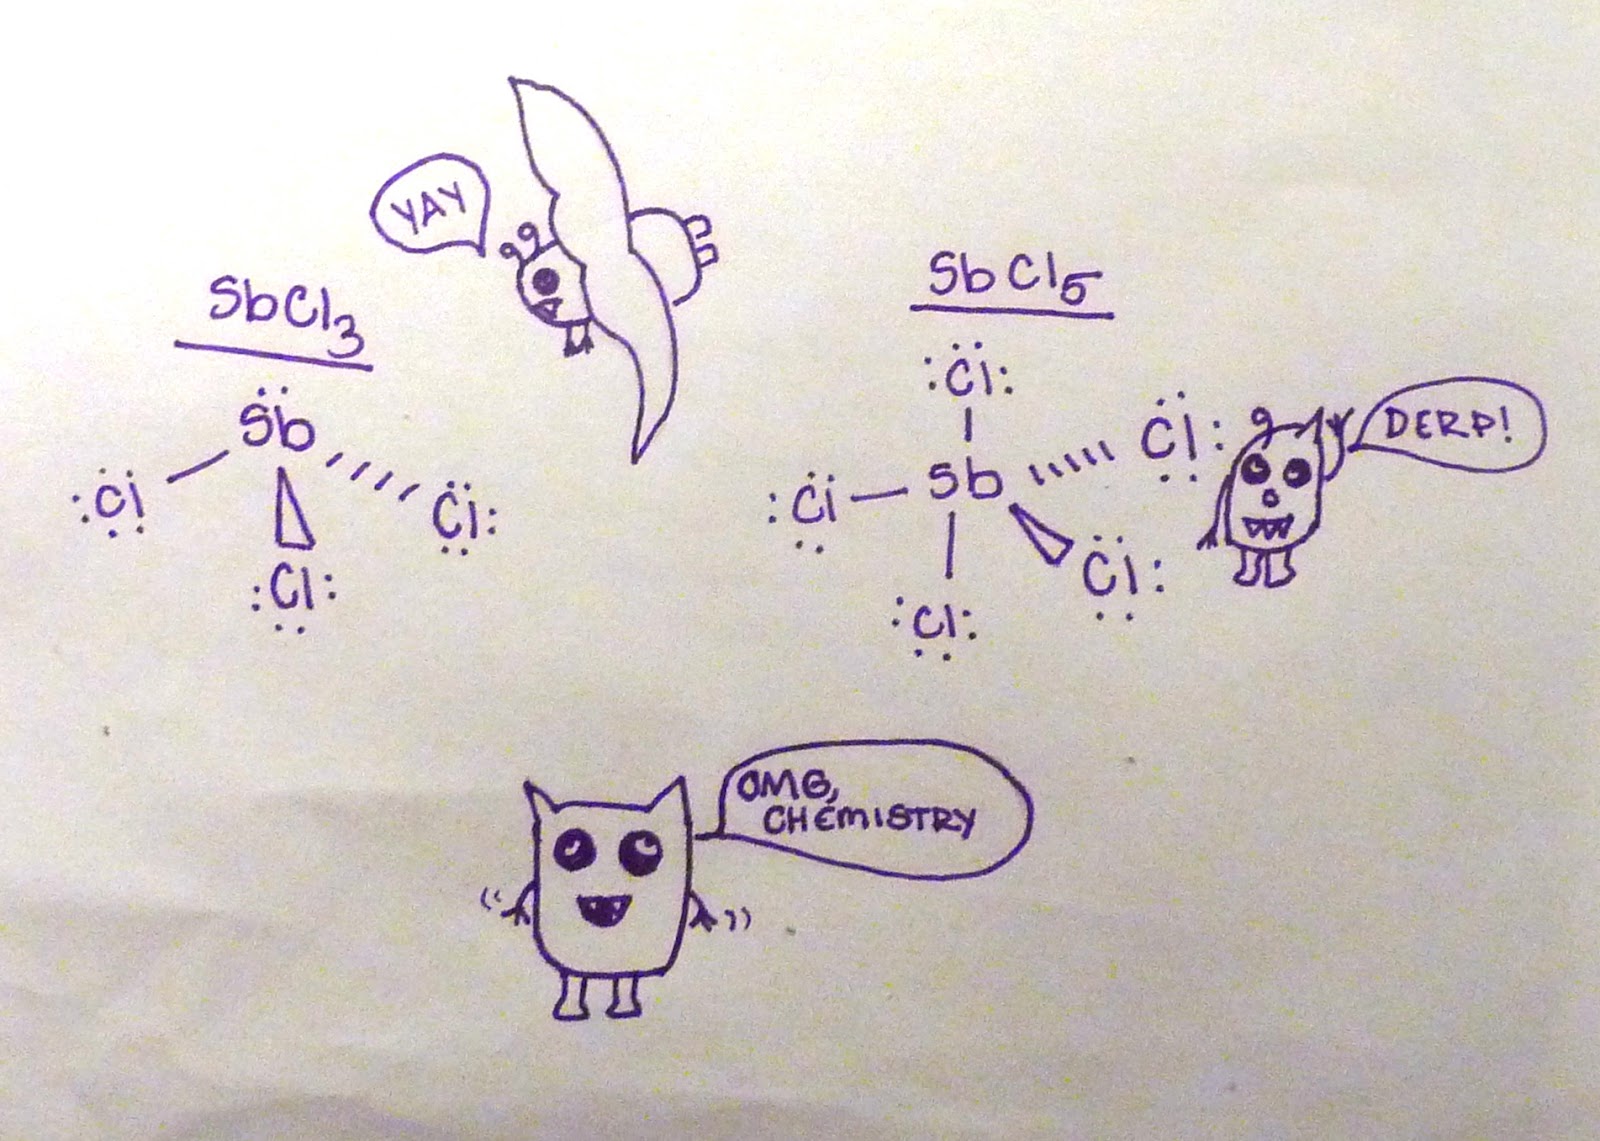 YAY
SbCl₃
Sb
Cl
Cl
Cl
SbCl₅
Cl
Cl
Sb
Cl
Cl
Cl
DERP!
OMG,
CHEMISTRY